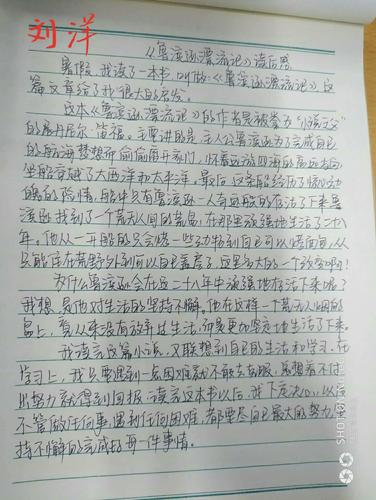 刘洋
《鲁滨逊漂流记》读后感
暑假,我读了一本书,叫做《鲁滨逊漂流记》,这
篇文章给了我很大的启发。
这本《鲁滨逊漂流记》的作者是被誉为"小说之父"
的展丹尼尔·笛福。主要讲的是:主人公鲁滨逊为了完成自己
的航海梦想而偷偷离开家门,怀着远游四海的高远志向,
坐船穿越了大西洋和太平洋。最后,这条船经历了惊心动
魄的险情,船中只有鲁滨逊一人奇迹般的存活了下来。鲁
滨逊找到了一个荒无人间的荒岛,在那里顽强地生活了二十八
年。他从一开始的只会
只能住在荒野外到可以自己盖房子,这是多大的一个改变啊!
为什么鲁滨逊会在这二十八年中顽强地存活下来呢?
我想,是他对生活的坚持不懈。他在这样一个荒无人烟的
岛上,看从来没有放弃过生活,而是更加坚定地生活了下来。
我读完这篇小说,又联想到自己的生活和学习,在
学习上,我只要遇到一点困难就不敢去克服,总想着不付
出努力就得到回报。读完这本书以后,我下定决心,以后
不管做任何事,遇到任何困难,都要尽自己最大的努力,坚
持不懈的完成好每一件事情。
SHOT ON